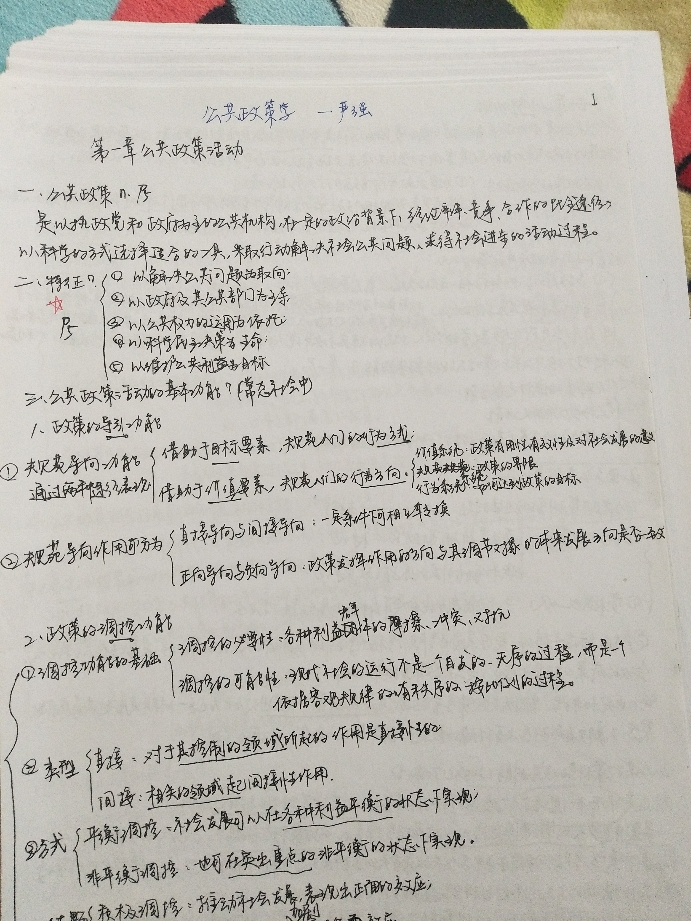 1
公共政策学 一 严强
第一章公共政策活动
一、公共政策 n. 序
是以执政党和政府为主的公共机构，在一定的政治背景下，经过 竞争、合作的 途径，
以科学的方式选择适合的工具，采取行动解决社会公共问题，求得社会进步的活动过程。
二、特征？
① 以解决公共问题为取向；
②以政府及其公共部门为主导
③以公共权力的运用为依托；
④以科学民主决策为
⑤以维护公共利益为目标
三、公共政策活动的基本功能？(常态社会中)
1、政策的导引功能
①规范导向功能
通过两种
借助于目标要素，规范人们的行为方式；
借助于价值要素，规范人们的行为方向。
价值 ：政策有 对社会发展的意义
：政策的界限
行为 ： 达到政策的目标
②规范导向作用可分为
直接导向与间接导向：一定条件下可相互转换
正向导向与负向导向：政策发挥作用的方向与其调节对象的未来发展方向是否一致
2、政策的调控功能
①调控功能的基础
调控的必要性：各种利益 的摩擦、冲突、对抗
调控的可能性：现代社会的运行不是一个自发的、无序的过程，而是一个
依据客观规律的、有秩序的、 的过程。
②类型
直接：对于其控制的领域所起的作用是直接性的
间接：相关的领域起间接性作用.
③方式
平衡调控：社会发展可以在各种利益平衡的状态下实现；
非平衡调控：也可在突出重点的非平衡的状态下实现。
积极调控：推动社会发展，表现出正面的效应；